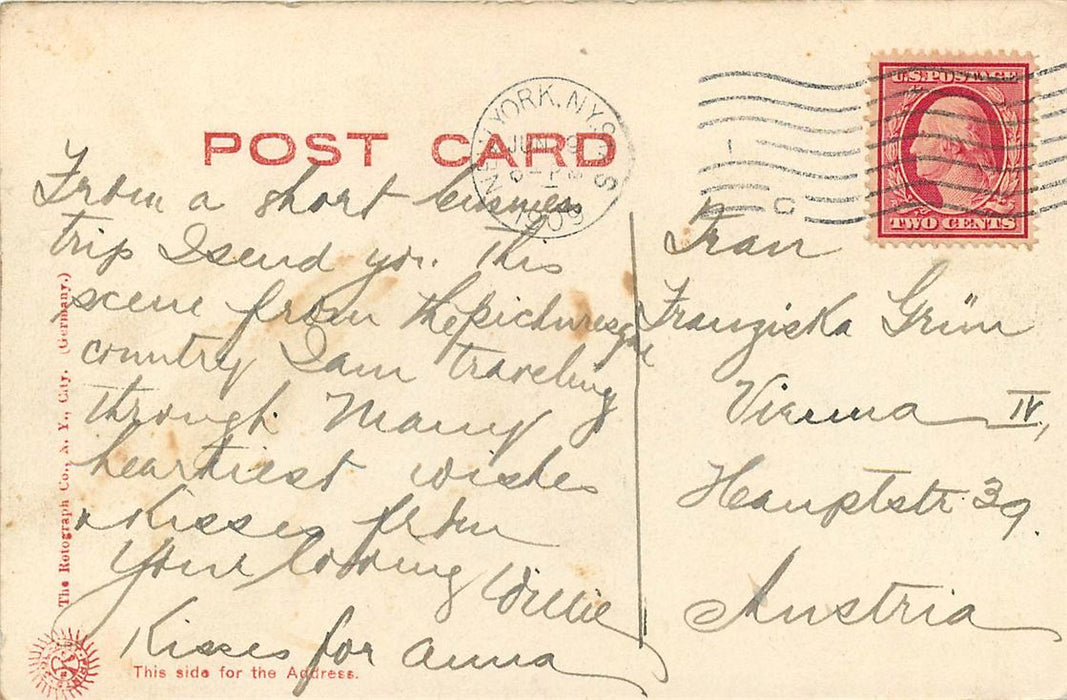 POST CARD
NEW YORK, N.Y.
JUN 9
1909
U.S. POSTAGE
TWO CENTS
C
From a short business
trip I send you. This
scene from the picturesque
country I am traveling
through. Many
heartiest wishes
& Kisses from
Your loving Willie
Kisses for Anna
Frau
Franziska Grün
Vienna IV,
Hauptstr. 39.
Austria
The Rotograph Co., N. Y., City. (Germany.)
This side for the Address.